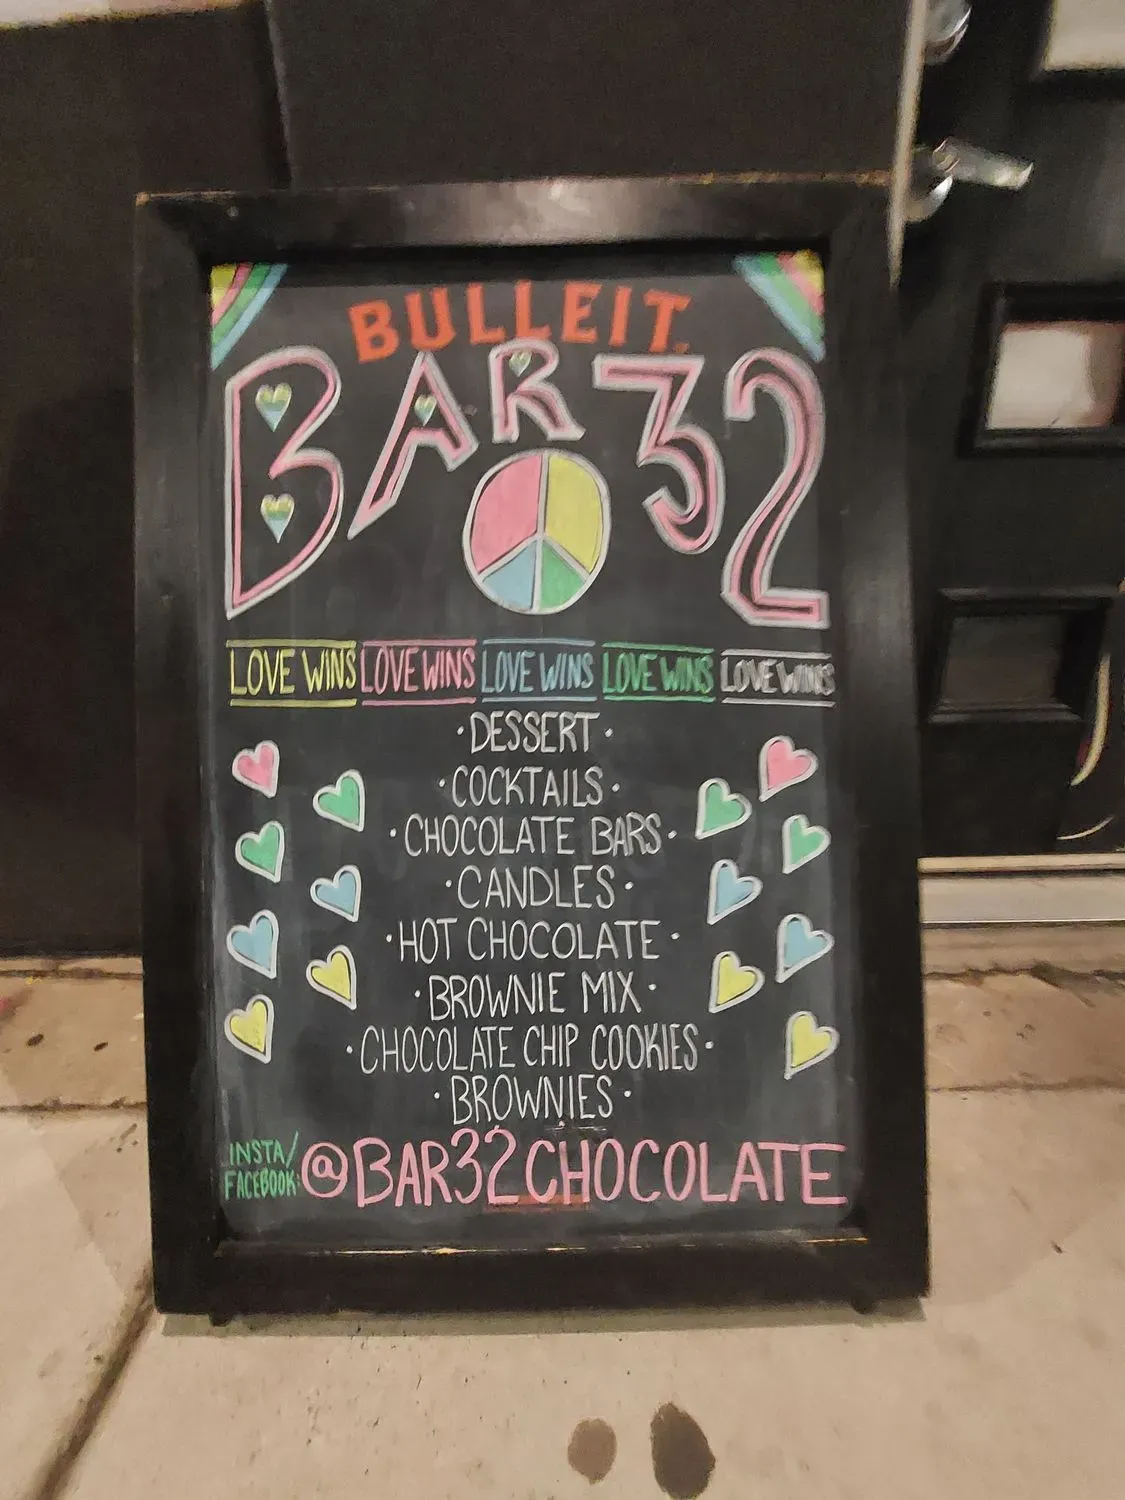 BULLEIT
BAR 32
LOVE WINS LOVE WINS LOVE WINS LOVE WINS LOVE WINS
· DESSERT ·
· COCKTAILS ·
· CHOCOLATE BARS ·
· CANDLES ·
· HOT CHOCOLATE ·
· BROWNIE MIX ·
· CHOCOLATE CHIP COOKIES ·
· BROWNIES ·
INSTA/
FACEBOOK: @BAR32CHOCOLATE